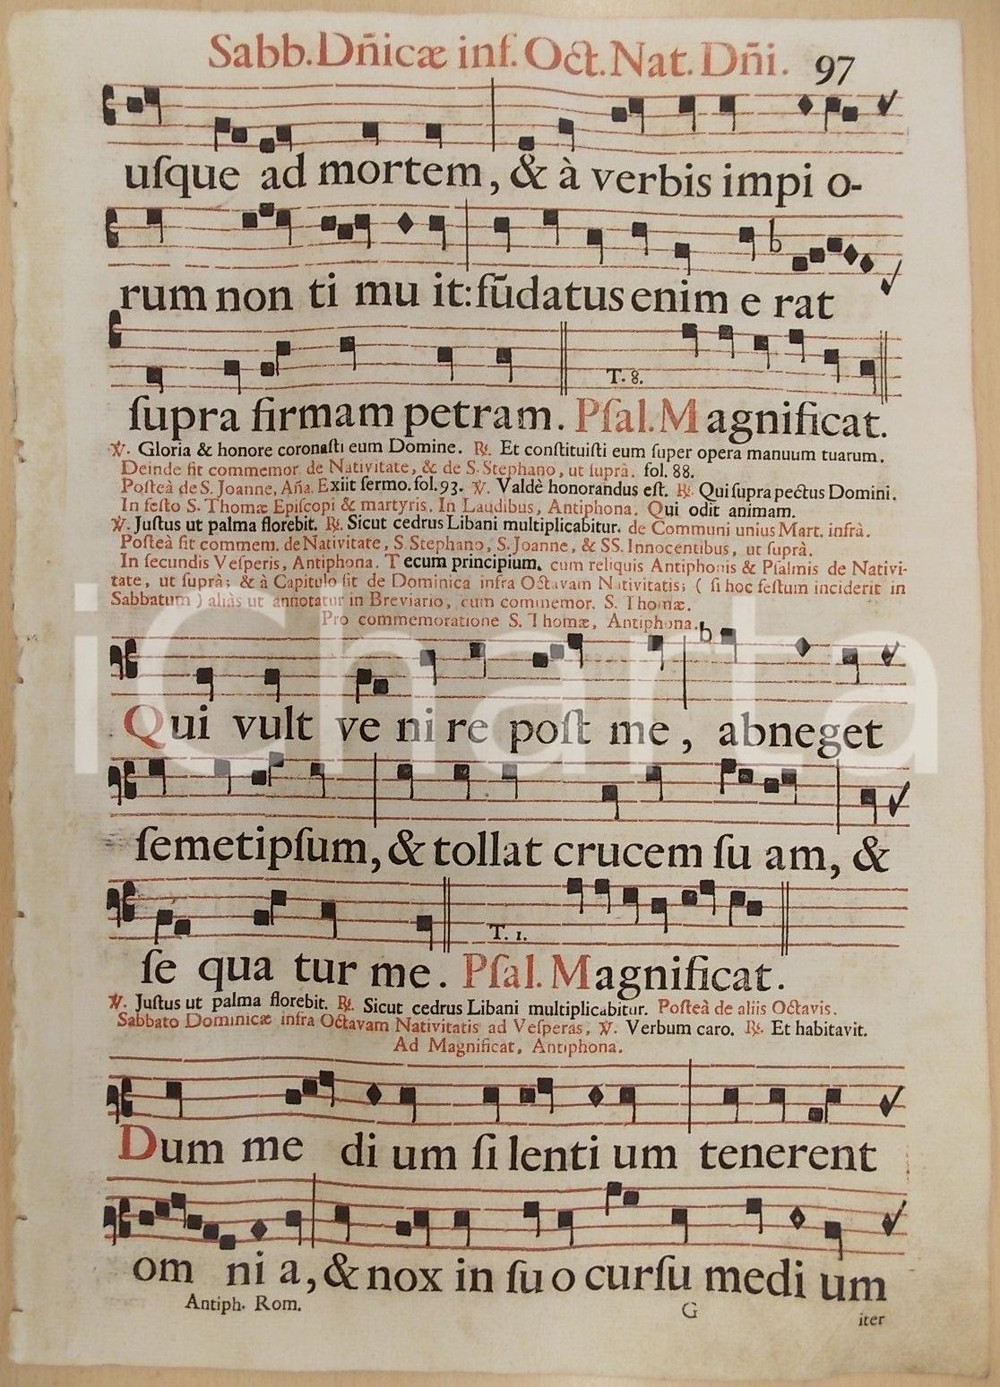 Sabb. Dñicæ inf. Oct. Nat. Dñi. 97
uſque ad mortem, & à verbis impi o-
rum non ti mu it: fũdatus enim e rat
T. 8.
ſupra firmam petram. Pſal. Magnificat.
℣. Gloria & honore coronaſti eum Domine. ℟. Et conſtituiſti eum ſuper opera manuum tuarum.
Deinde fit commemor. de Nativitate, & de S. Stephano, ut ſuprà. fol. 88.
Poſteà de S. Joanne, Aña. Exiit ſermo. fol. 93. ℣. Valdè honorandus eſt. ℟. Qui ſupra pectus Domini.
In feſto S. Thomæ Epiſcopi & martyris. In Laudibus, Antiphona. Qui odit animam.
℣. Juſtus ut palma florebit. ℟. Sicut cedrus Libani multiplicabitur. de Communi unius Mart. infrà.
Poſteà fit commem. de Nativitate, S. Stephano, S. Joanne, & SS. Innocentibus, ut ſuprà.
In ſecundis Veſperis, Antiphona. Tecum principium. cum reliquis Antiphonis & Pſalmis de Nativi-
tate, ut ſuprà; & à Capitulo fit de Dominica infra Octavam Nativitatis; ( ſi hoc feſtum inciderit in
Sabbatum ) aliàs ut annotatur in Breviario, cum commemor. S. Thomæ.
Pro commemoratione S. Thomæ, Antiphona.
Qui vult ve ni re poſt me, abneget
ſemetipſum, & tollat crucem ſu am, &
T. 1.
ſe qua tur me. Pſal. Magnificat.
℣. Juſtus ut palma florebit. ℟. Sicut cedrus Libani multiplicabitur. Poſteà de aliis Octavis.
Sabbato Dominicæ infra Octavam Nativitatis ad Veſperas, ℣. Verbum caro. ℟. Et habitavit.
Ad Magnificat, Antiphona.
Dum me di um ſi lenti um tenerent
om ni a, & nox in ſu o curſu medi um
Antiph. Rom. G
iter
iCharta